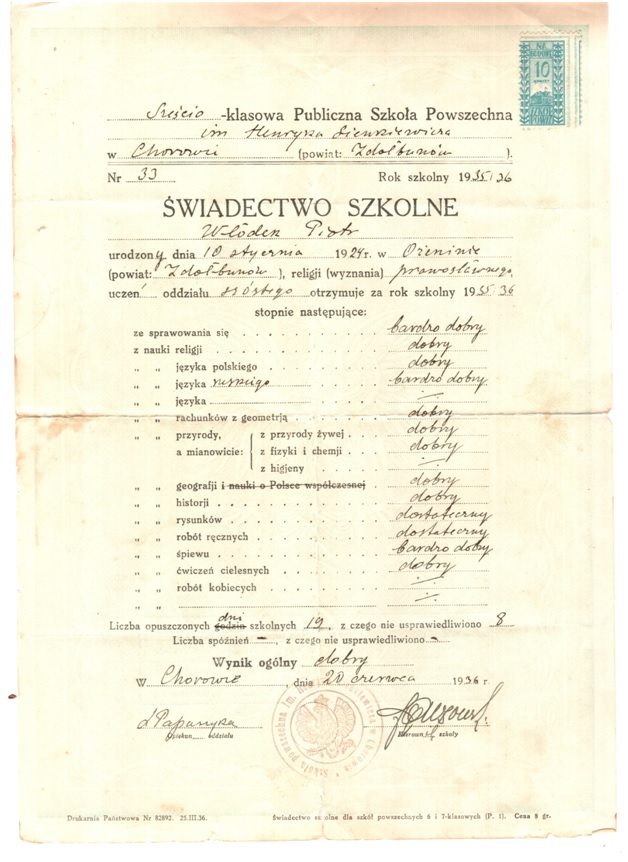 NA BUDOWĘ
10
GROSZY
SZKÓŁ POWSZ.
Sześcio -klasowa Publiczna Szkoła Powszechna
im Henryka Sienkiewicza
w Chorowie (powiat: Zdołbunów ).
Nr 33 Rok szkolny 1935/36
ŚWIADECTWO SZKOLNE
Włódek Piotr
urodzony dnia 10 stycznia 1924 r. w Ożeninie
(powiat: Zdołbunów ), religii (wyznania) prawosławnego,
uczeń oddziału szóstego otrzymuje za rok szkolny 1935/36
stopnie następujące:
ze sprawowania się bardzo dobry
z nauki religii dobry
„ „ języka polskiego dobry
„ „ języka ruskiego bardzo dobry
„ „ języka -/-
„ „ rachunków z geometrją dobry
„ „ przyrody, z przyrody żywej dobry
a mianowicie: z fizyki i chemji dobry
z higjeny -/-
„ „ geografji i nauki o Polsce współczesnej dobry
„ „ historji dobry
„ „ rysunków dostateczny
„ „ robót ręcznych dostateczny
„ „ śpiewu bardzo dobry
„ „ ćwiczeń cielesnych dobry
„ „ robót kobiecych -/-
„ „ -/-
dni
Liczba opuszczonych godzin szkolnych 19, z czego nie usprawiedliwiono 8
Liczba spóźnień –, z czego nie usprawiedliwiono –
Wynik ogólny dobry
W Chorowie, dnia 20 czerwca 1936 r.
Opiekun oddziału
Kierownik szkoły
Drukarnia Państwowa Nr 82892. 25.III.36. Świadectwo szkolne dla szkół powszechnych 6 i 7-klasowych (P. 1). Cena 8 gr.